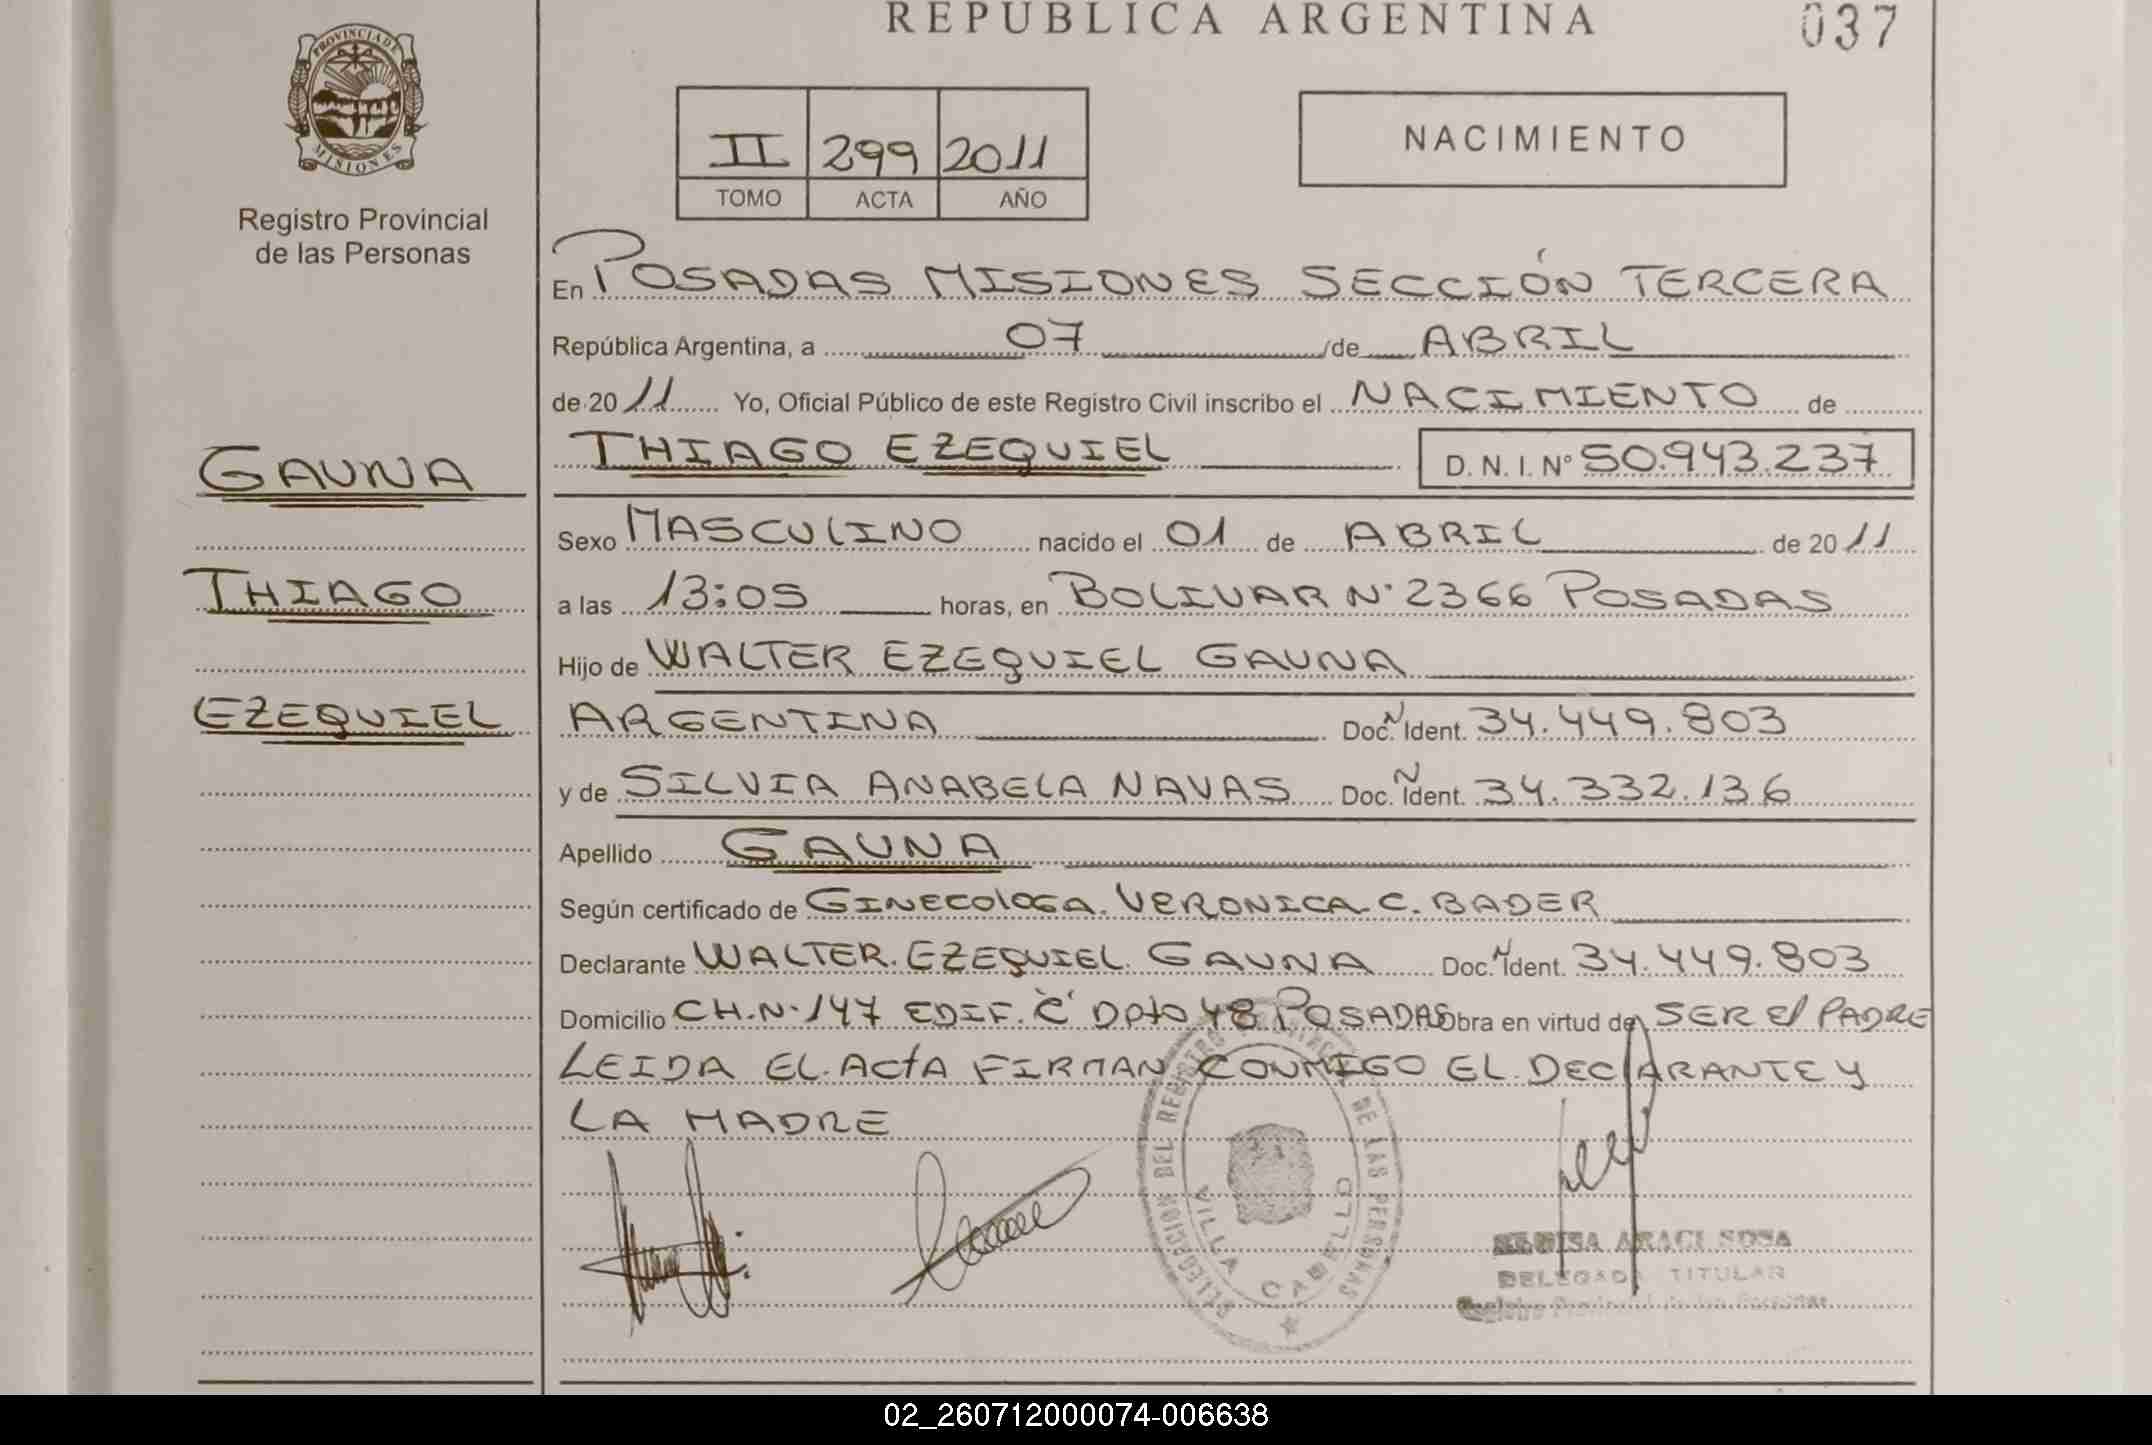 REPUBLICA ARGENTINA
037
PROVINCIA DE
MISIONES
Registro Provincial
de las Personas
II 299 2011
TOMO ACTA AÑO
NACIMIENTO
En POSADAS MISIONES SECCIÓN TERCERA
República Argentina, a 07 /de ABRIL
de 2011 Yo, Oficial Público de este Registro Civil inscribo el NACIMIENTO de
THIAGO EZEQUIEL D. N. I. N° 50.943.237
GAUNA
THIAGO
EZEQUIEL
Sexo MASCULINO nacido el 01 de ABRIL de 2011
a las 13:05 horas, en BOLIVAR N° 2366 POSADAS
Hijo de WALTER EZEQUIEL GAUNA
ARGENTINA Doc. N Ident. 34.449.803
y de SILVIA ANABELA NAVAS Doc. N Ident. 34.332.136
Apellido GAUNA
Según certificado de GINECOLOGA. VERONICA. C. BADER
Declarante WALTER. EZEQUIEL. GAUNA Doc. N Ident. 34.449.803
Domicilio CH. N. 147 EDIF. "C" Dpto 48 POSADAS Obra en virtud de SER El PADRE
LEIDA EL. ACtA FIRMAN CONMIGO EL DECLARANTE Y
LA MADRE
DELEGACION DEL REGISTRO PROVINCIAL DE LAS PERSONAS
VILLA CABELLO
ARACI SOSA
DELEGADA TITULAR
Registro Provincial de las Personas
02_260712000074-006638